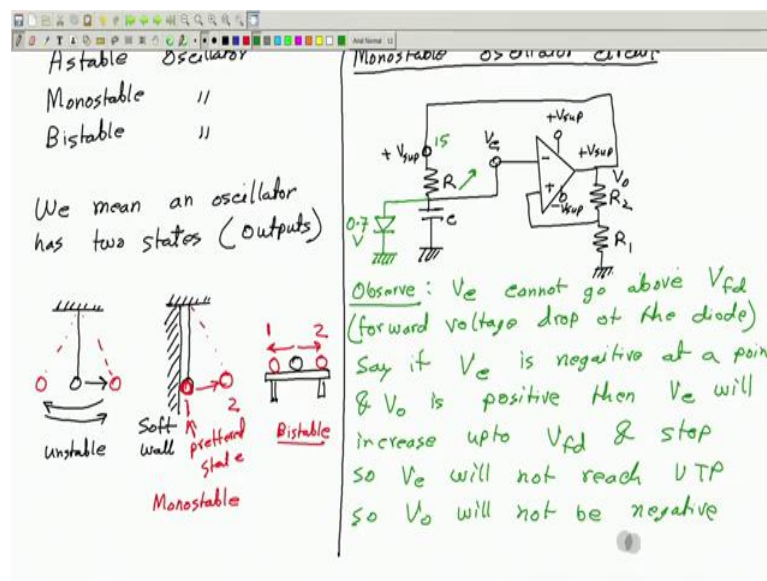 Astable Oscillator
Monostable "
Bistable "
We mean an oscillator
has two states (outputs)
1 2
Soft
wall
1 2
preffered
state
unstable
Bistable
Monostable
Monostable oscillator circuit
+Vsup
+Vsup 15
Vc
+Vsup
R
-
+
Vo
-Vsup
R2
0.7
V
C
R1
Observe: Vc cannot go above Vfd
(forward voltage drop of the diode)
Say if Vc is negaitive at a poin
& Vo is positive then Vc will
increase upto Vfd & stop
so Vc will not reach UTP
so Vo will not be negative